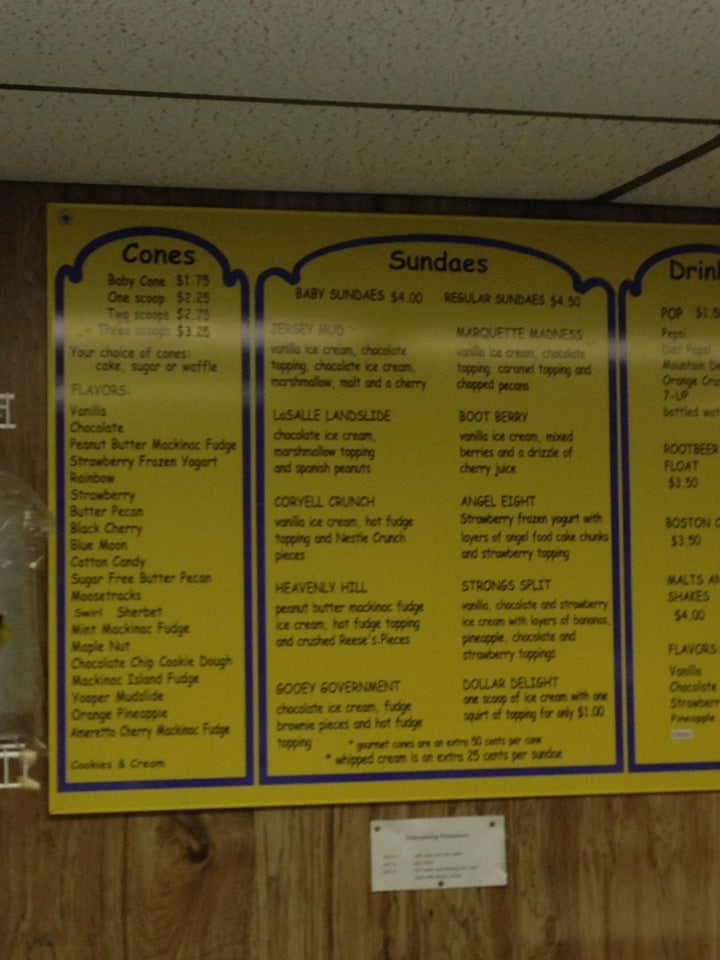 Cones
Baby Cone $1.75
One scoop $2.25
Two scoops $2.75
Three scoops $3.25
Your choice of cones:
cake, sugar or waffle
FLAVORS:
Vanilla
Chocolate
Peanut Butter Mackinac Fudge
Strawberry Frozen Yogart
Rainbow
Strawberry
Butter Pecan
Black Cherry
Blue Moon
Cotton Candy
Sugar Free Butter Pecan
Moosetracks
Swirl Sherbet
Mint Mackinac Fudge
Maple Nut
Chocolate Chip Cookie Dough
Mackinac Island Fudge
Yooper Mudslide
Orange Pineapple
Ameretto Cherry Mackinac Fudge
Cookies & Cream
Sundaes
BABY SUNDAES $4.00 REGULAR SUNDAES $4.50
JERSEY MUD
vanilla ice cream, chocolate
topping, chocolate ice cream,
marshmallow, malt and a cherry
LaSALLE LANDSLIDE
chocolate ice cream,
marshmallow topping
and spanish peanuts
CORYELL CRUNCH
vanilla ice cream, hot fudge
topping and Nestle Crunch
pieces
HEAVENLY HILL
peanut butter mackinac fudge
ice cream, hot fudge topping
and crushed Reese's Pieces
GOOEY GOVERNMENT
chocolate ice cream, fudge
brownie pieces and hot fudge
topping
MARQUETTE MADNESS
vanilla ice cream, chocolate
topping, caramel topping and
chopped pecans
BOOT BERRY
vanilla ice cream, mixed
berries and a drizzle of
cherry juice
ANGEL EIGHT
Strawberry frozen yogurt with
layers of angel food cake chunks
and strawberry topping
STRONGS SPLIT
vanilla, chocolate and strawberry
ice cream with layers of bananas,
pineapple, chocolate and
strawberry toppings
DOLLAR DELIGHT
one scoop of ice cream with one
squirt of topping for only $1.00
* gourmet cones are an extra 50 cents per cone
* whipped cream is an extra 25 cents per sundae
Drin
POP $1.5
Pepsi
Diet Pepsi
Mountain De
Orange Cru
7-UP
bottled wat
ROOTBEER
FLOAT
$3.50
BOSTON C
$3.50
MALTS AN
SHAKES
$4.00
FLAVORS
Vanilla
Chocolate
Strawberr
Pineapple